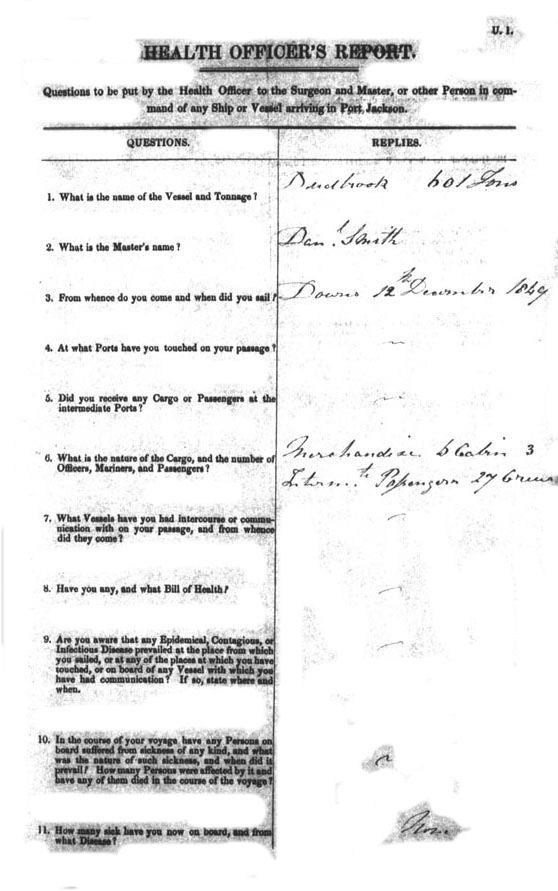 U. 1.
HEALTH OFFICER'S REPORT.
Questions to be put by the Health Officer to the Surgeon and Master, or other Person in com-
mand of any Ship or Vessel arriving in Port Jackson.
QUESTIONS. REPLIES.
1. What is the name of the Vessel and Tonnage? 601 Tons
2. What is the Master's name? Danl. Smith
3. From whence do you come and when did you sail? Downs 12th December 1849
4. At what Ports have you touched on your passage? ~
5. Did you receive any Cargo or Passengers at the
intermediate Ports? ~
6. What is the nature of the Cargo, and the number of
Officers, Mariners, and Passengers?
Merchandise 6 Cabin 3
Intermte Passengers 27 Crew
7. What Vessels have you had intercourse or commu-
nication with on your passage, and from whence
did they come? ~
8. Have you any, and what Bill of Health? ~
9. Are you aware that any Epidemical, Contagious, or
Infectious Disease prevailed at the place from which
you sailed, or at any of the places at which you have
touched, or on board of any Vessel with which you
have had communication? If so, state where and
when. ~
10. In the course of your voyage have any Persons on
board suffered from sickness of any kind, and what
was the nature of such sickness, and when did it
prevail? How many Persons were affected by it and
have any of them died in the course of the voyage? ~
11. How many sick have you now on board, and from
what Disease? Non.